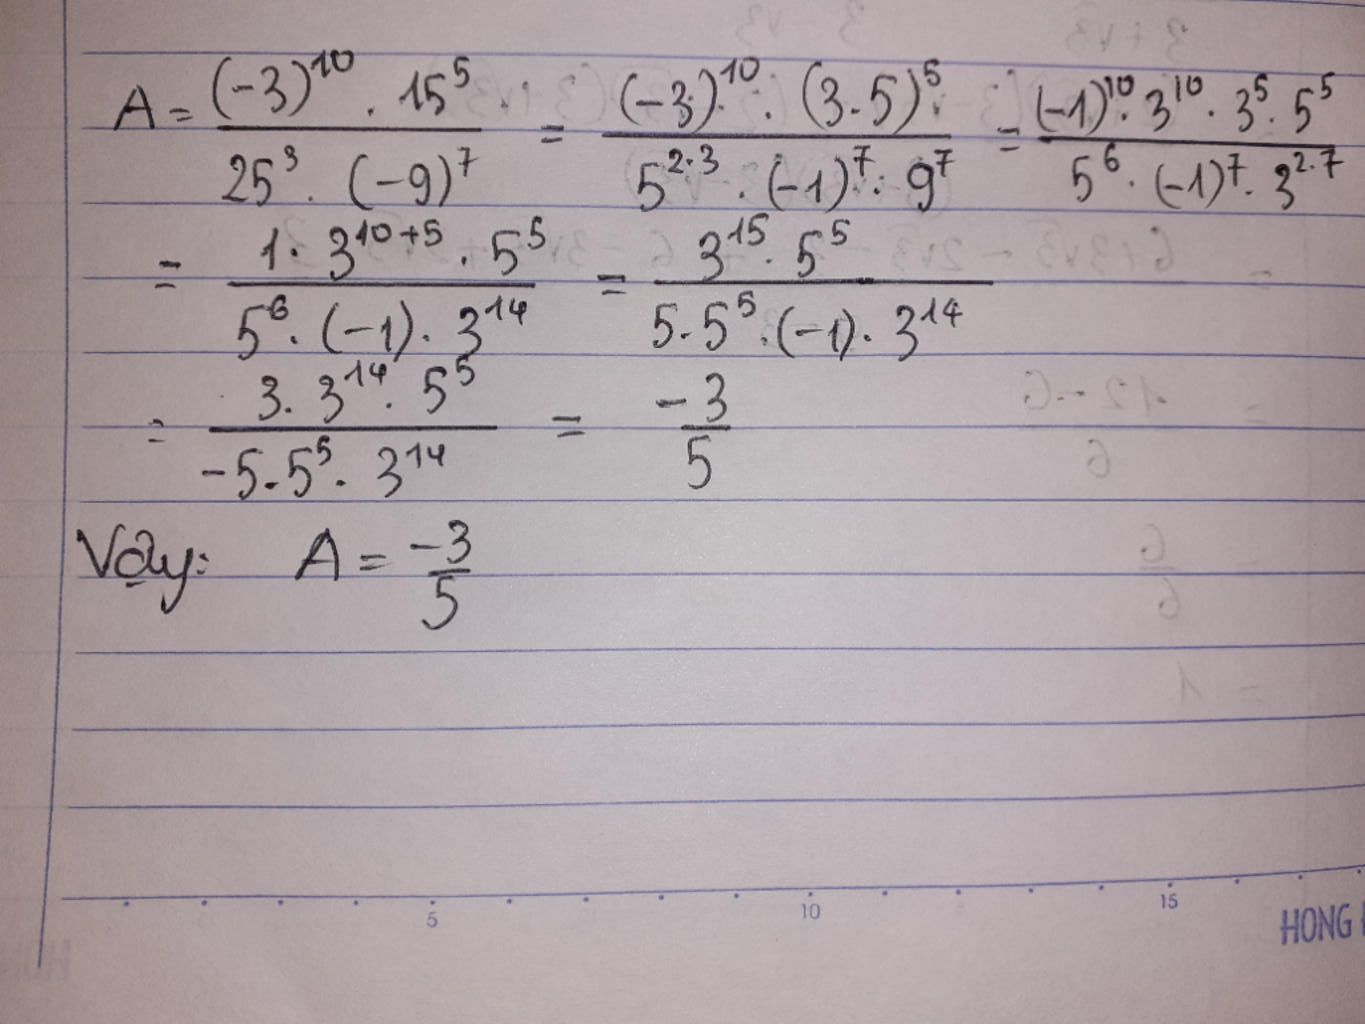 A = \frac{(-3)^{10} . 15^5}{25^3 . (-9)^7} = \frac{(-3)^{10} . (3.5)^5}{5^{2.3} . (-1)^7 . 9^7} = \frac{(-1)^{10} . 3^{10} . 3^5 . 5^5}{5^6 . (-1)^7 . 3^{2.7}}
= \frac{1 . 3^{10+5} . 5^5}{5^6 . (-1) . 3^{14}} = \frac{3^{15} . 5^5}{5 . 5^5 . (-1) . 3^{14}}
= \frac{3 . 3^{14} . 5^5}{-5 . 5^5 . 3^{14}} = \frac{-3}{5}
Vậy: A = \frac{-3}{5}
5 10 15
HONG